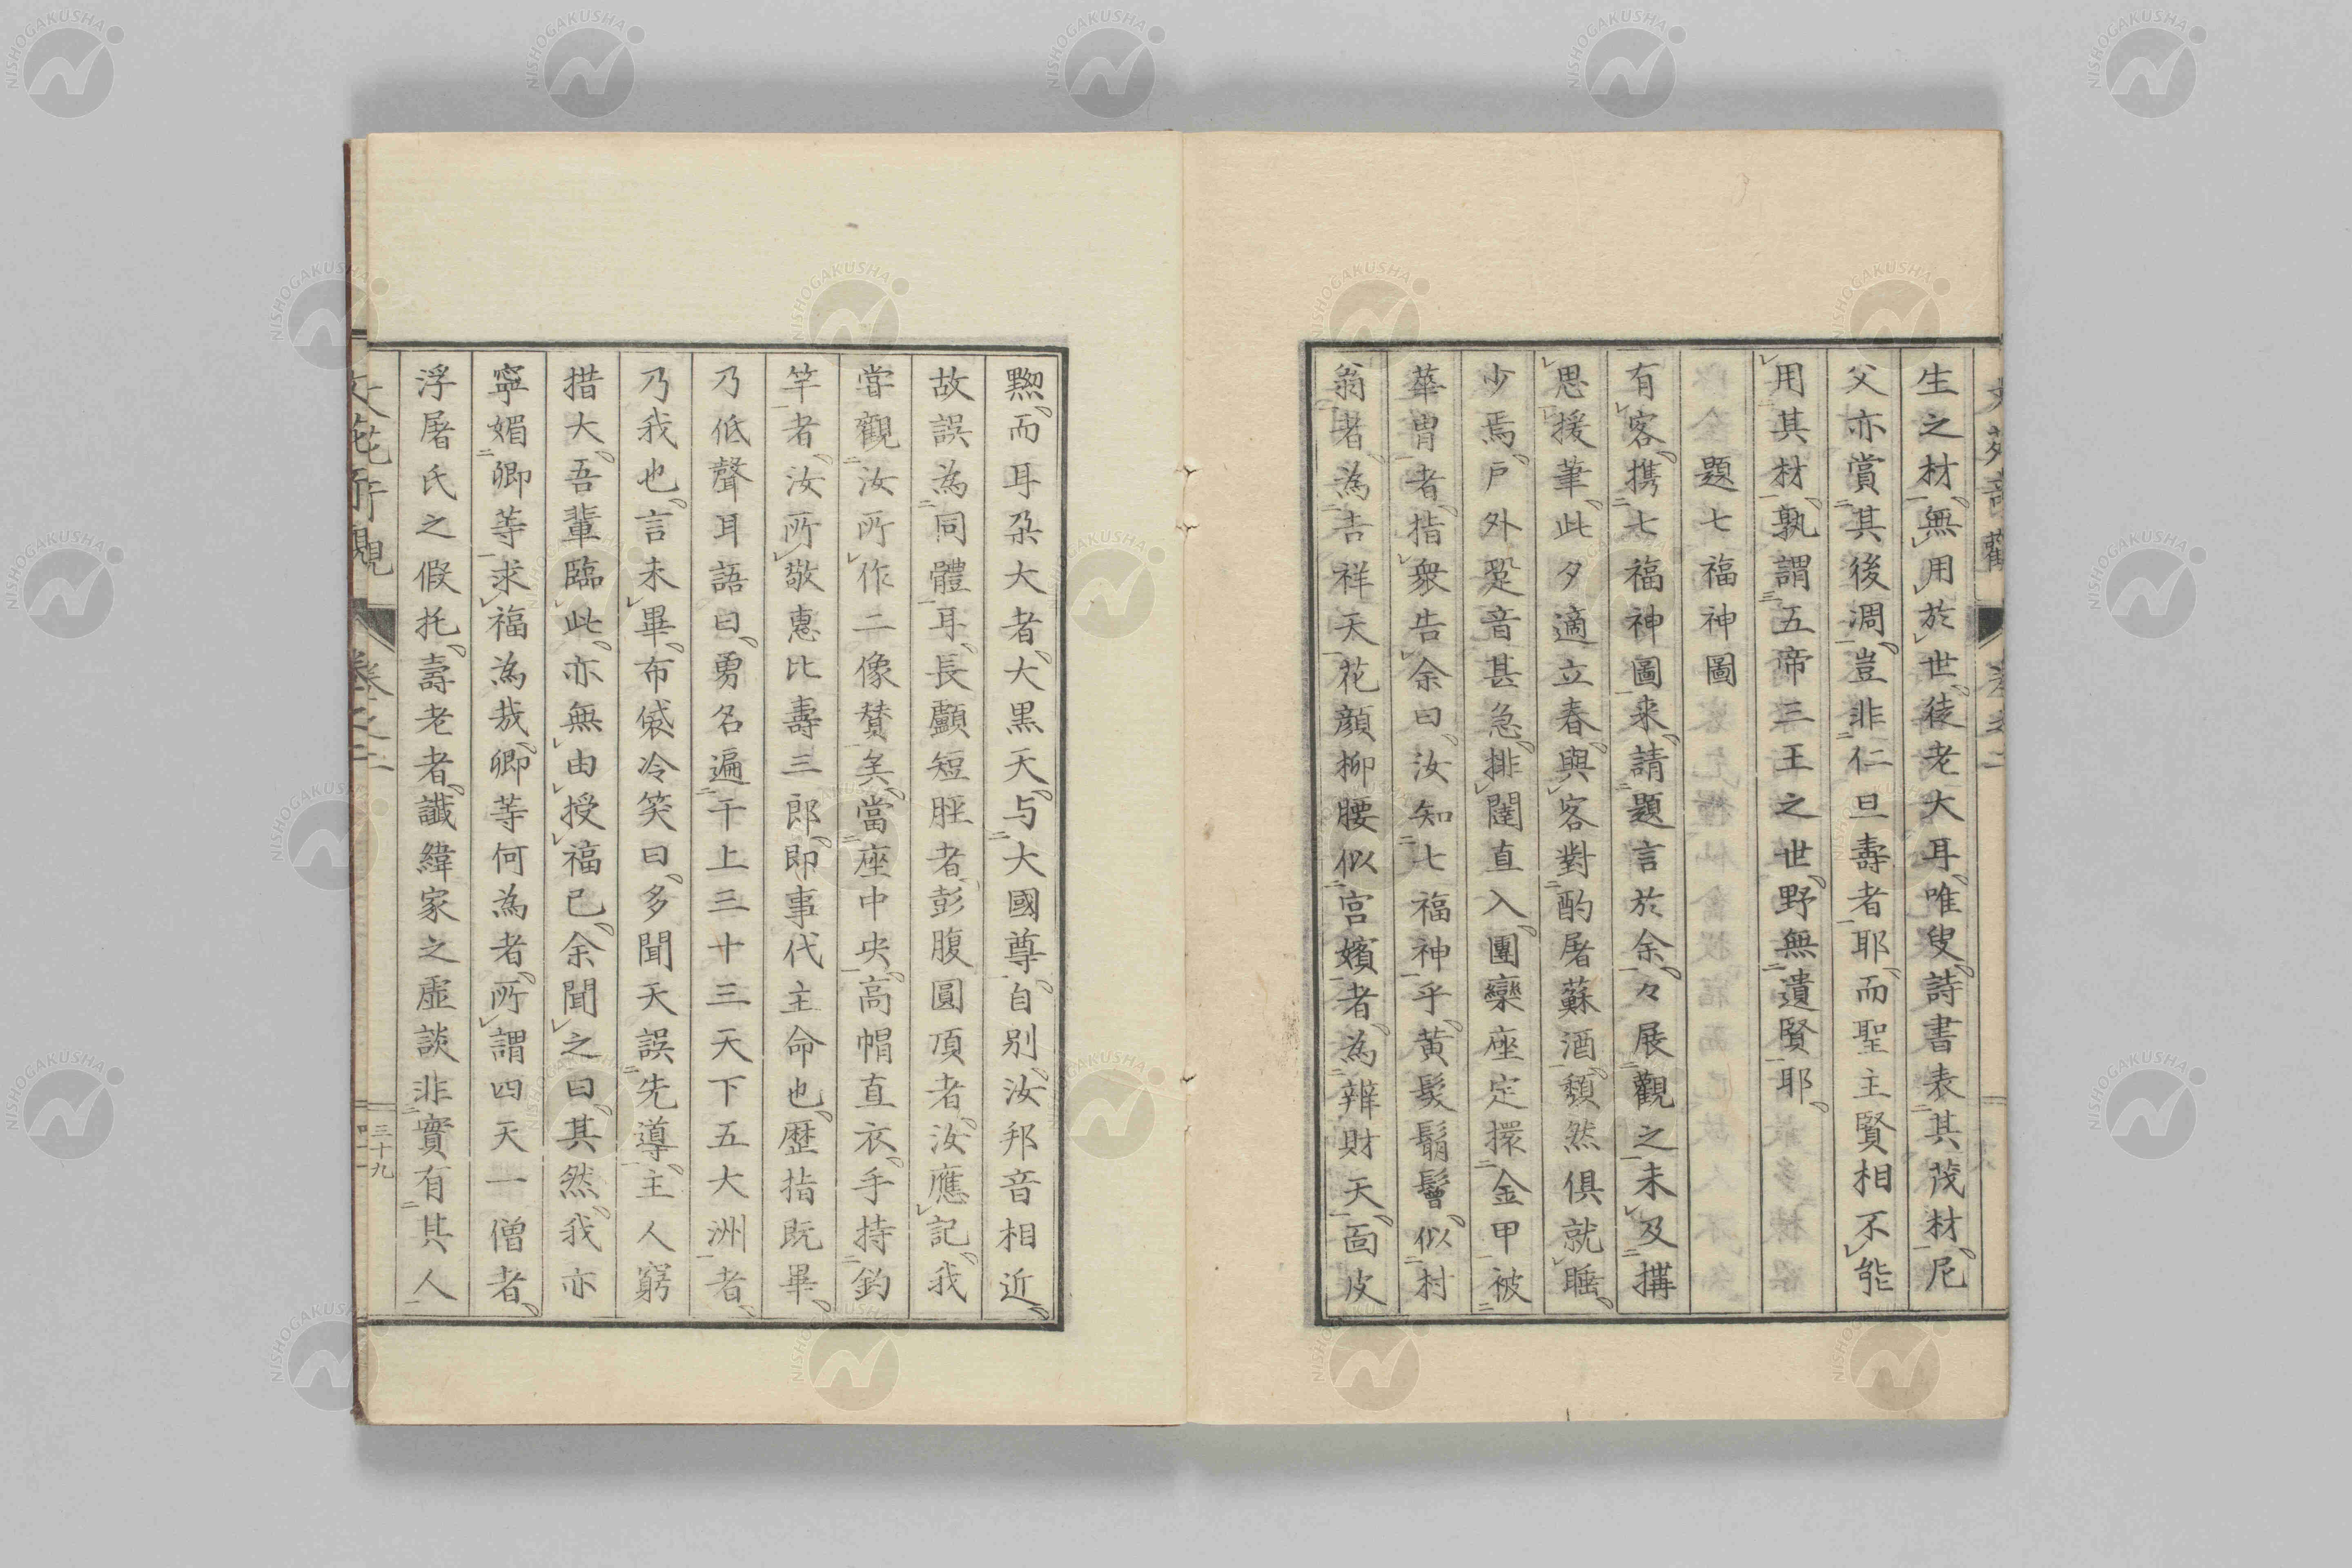 生之材無用於世徒老大耳唯叟詩書表其茂材尼
父亦賞其後凋豈非仁旦壽者耶而聖主賢相不能
用其材孰謂五帝三王之世野無遺賢耶
題七福神圖
有客携七福神圖来請題言於余々展觀之未及搆
思援筆此夕適立春與客對酌屠蘇酒頽然俱就睡
少焉戸外跫音甚急排闥直入團欒座定擐金甲被
華冑者指衆告余曰汝知七福神乎黄髮鬅鬙似村
翁者為吉祥天花顔柳腰似宮嬪者為辨財天面皮
黙而耳朶大者大黒天与大國尊自別汝邦音相近
故誤為同體耳長顱短脛者彭腹圓頂者汝應記我
甞觀汝所作二像賛矣當座中央高帽直衣手持釣
竿者汝所敬惠比壽三郎即事代主命也歴指既畢
乃低聲耳語曰勇名遍于上三十三天下五大洲者
乃我也言未畢布袋冷笑曰多聞天誤先導主人窮
措大吾輩臨此亦無由授福已余聞之曰其然我亦
寧媚卿等求福為哉卿等何為者所謂四天一僧者
浮屠氏之假托壽老者讖緯家之虚談非實有其人
卷之二
三十九
NISHOGAKUSHA